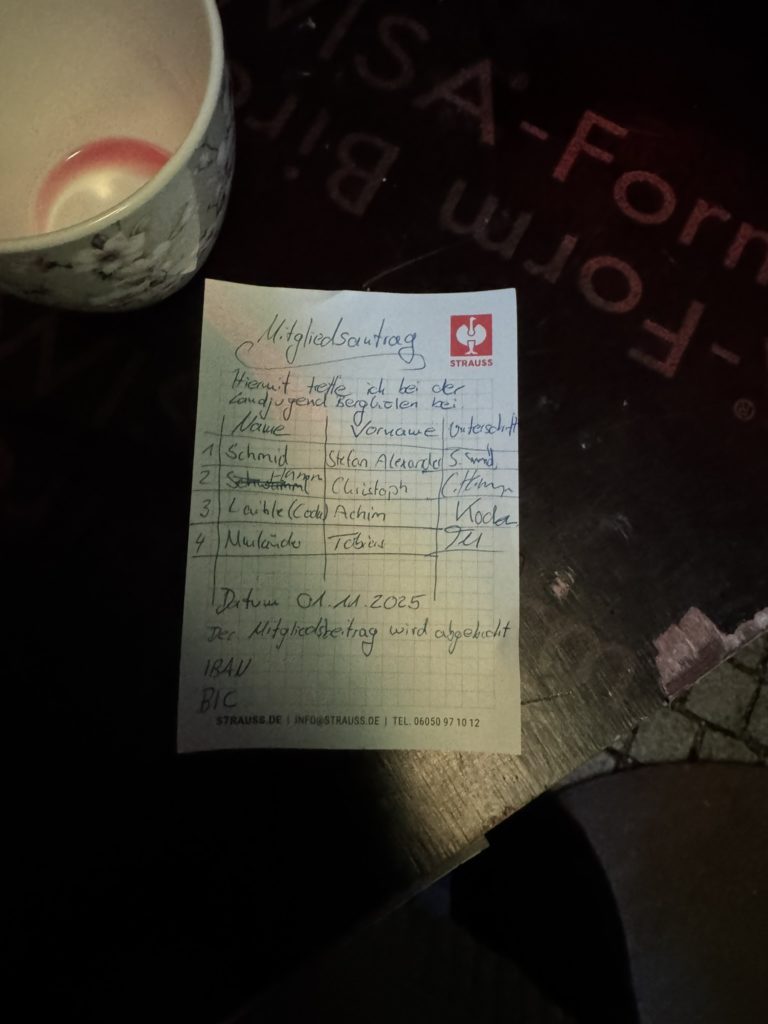 VISA-Form
-Form Bir
Mitgliedsantrag
STRAUSS
Hiermit trette ich bei der
Landjugend Berghülen bei
Name Vorname Unterschrift
1 Schmid Stefan Alexander S. Schmid
2 Christoph
3 Laible (Coda) Achim Koda
4 Tobias TM
Datum 01.11.2025
Der Mitgliedsbeitrag wird abgebucht
IBAN
BIC
STRAUSS.DE | INFO@STRAUSS.DE | TEL. 06050 97 10 12